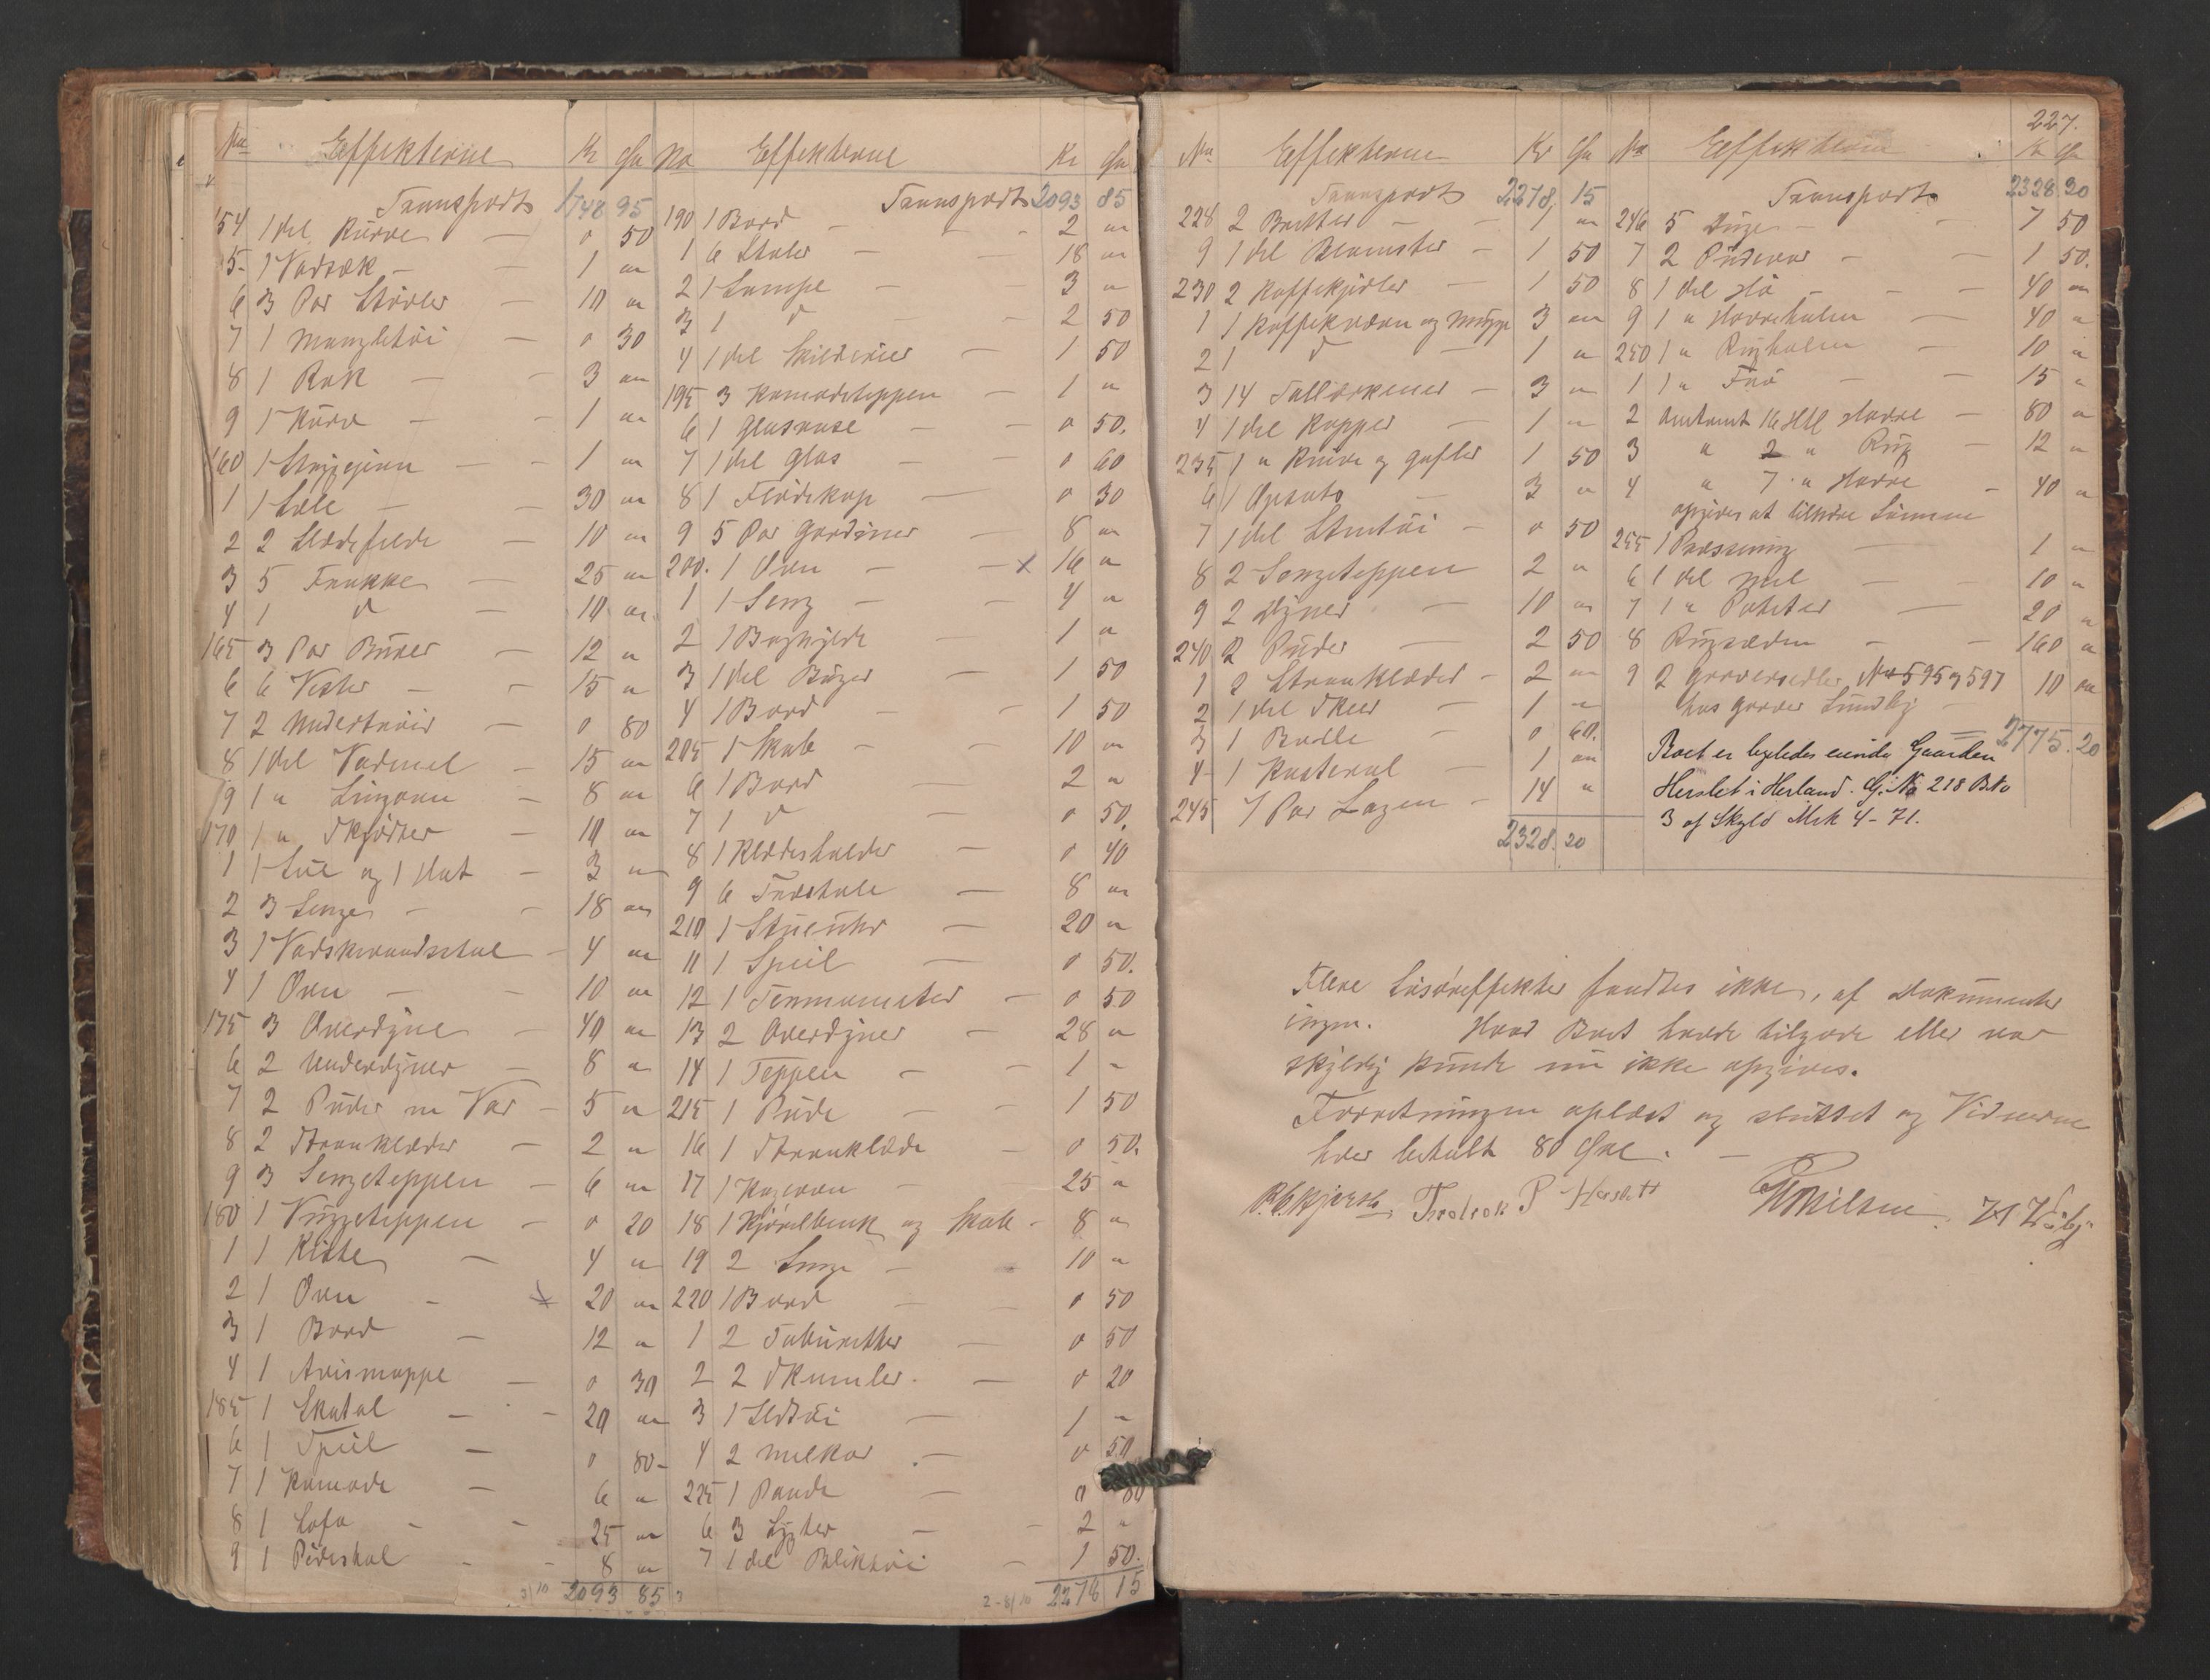 No Effekterne Kr Øre
Transports 1748 95
154 1 del Kurve — 0 50
5 1 Vadsæk — 1 "
6 3 Par Støvler — 10 "
7 1 Mangletøi — 0 30
8 1 Rok — 3 "
9 1 Kurv — 1 "
160 1 Strygejern — 1 "
1 1 Sæle — 30 "
2 2 Slædefelde — 10 "
3 5 Frakke — 25 "
4 1 d — 10 "
165 3 Par Buxer — 12 "
6 6 Vester — 15 "
7 2 Undertrøier — 0 80
8 1 del Vadmel — 15 "
9 1 " — 8 "
170 1 " Skjorter — 10 "
1 1 Lue og 1 Hat — 3 "
2 3 Senge — 18 "
3 1 Vaskevandsstol — 4 "
4 1 Ovn — 10 "
175 3 Overdyne — 40 "
6 2 Underdyner — 8 "
7 2 Puder m Var — 5 "
8 2 Strienklæder — 2 "
9 3 Sengeteppen — 6 "
180 1 Vuggeteppen — 0 20
1 1 Kiste — 4 "
2 1 Ovn — 20 "
3 1 Bord — 12 "
4 1 Avismappe — 0 30
185 1 Skatol — 20 "
6 1 Speil — 0 80
7 1 Komode — 6 "
8 1 Sofa — 25 "
9 1 Pidestal — 8 "
2093 85
No Effekterne Kr Øre
Transports 2093 85
190 1 Bord — 2 "
1 6 Stoler — 18 "
2 1 Lampe — 3 "
3 1 d — 2 50
4 1 del Skilderier — 1 50
195 3 Komodeteppen — 1 "
6 1 Glasvase — 0 50.
7 1 del Glas — 0 60
8 1 Flødekop — 0 30
9 5 Par Gardiner — 8 "
200. 1 Ovn — x 16 "
1 1 Seng — 4 "
2 1 Boghylde — 1 "
3 1 del Bøger — 1 50
4 1 Bord — 1 50
205 1 Skab — 10 "
6 1 Bord — 2 "
7 1 d — 0 50.
8 1 Klædesholder — 0 40
9 6 Træstole — 8 "
210 1 Stueuhr — 20 "
11 1 Speil — 0 50.
12 1 Termometer — 0 50
13 2 Overdyner — 28 "
14 1 Teppen — 1 "
215 1 Pude — 1 50
16 1 Strienklæde — 0 50.
17 1 Kogeovn — 25 "
18 1 Kjørelbenk og Skab — 8 "
19 2 Senge — 10 "
220 1 Bord — 0 50
1 2 Taburetter — 0 50
2 2 Skamler — 0 20
3 1 Ildtøi — 1 "
4 2 Melkar — 0 50
225 1 Pande — 0 80
6 3 Lygter — 2 "
7 1 del Bliktøi — 1 50.
2278 15
227.
No Effekterne Kr Øre
Transports 2278, 15
228 2 Bretter — 1 "
9 1 del Blomster — 1 50
230 2 Kaffekjedler — 1 50
1 1 Kaffekværn og 3 "
2 1 d — 1 "
3 14 Tallerkener — 3 "
4 1 del Kopper — 1 "
235 1 " Knive og Gafler 1 50
6 1 Opsats — 3 "
7 1 del Stentøi — 0 50
8 2 Sengeteppen 2 "
9 2 Dyner — 10 "
240 2 Puder — 2 50
1 2 Strienklæder — 2 "
2 1 del Skeer — 1 "
3 1 Bolle — 0 60.
4 1 Kasterol — 1 "
245 7 Par Lagen — 14 "
2328.20
No Effekterne Kr Øre
Transports 2328 20
246 5 Duge — 7 50
7 2 Pudevar — 1 50.
8 1 del Hø — 40 "
9 1 " Havrehalm — 40 "
250 1 " Rughalm — 10 "
1 1 " Frø — 15 "
2 Omtrent 16 Htl Havre — 80 "
3 " 2 " Rug — 12 "
4 " 7 " Havre — 40 "
opgives at tilhøre Sønnen
255 1 Presenning — 1 "
6 1 del Mel — 10 "
7 1 " Poteter — 20 "
8 Rugsæden — 160 "
9 2 Garversedler No 595 og 597 10 "
hos Garver Lundby
2775.20
Boet er ligeledes eiende Gaarden
Herslet i Herland. G. No 218 B.No
3 af Skyld Mrk 4-71.
Flere Løsøreffekter fandtes ikke, af Dokumenter
ingen. Hvad Boet havde tilgode eller var
skyldig kunde nu ikke opgives.
Forretningen oplæst og sluttet og Vidnerne
hver betalt 80 Øre. —
Fredrek P Herslett